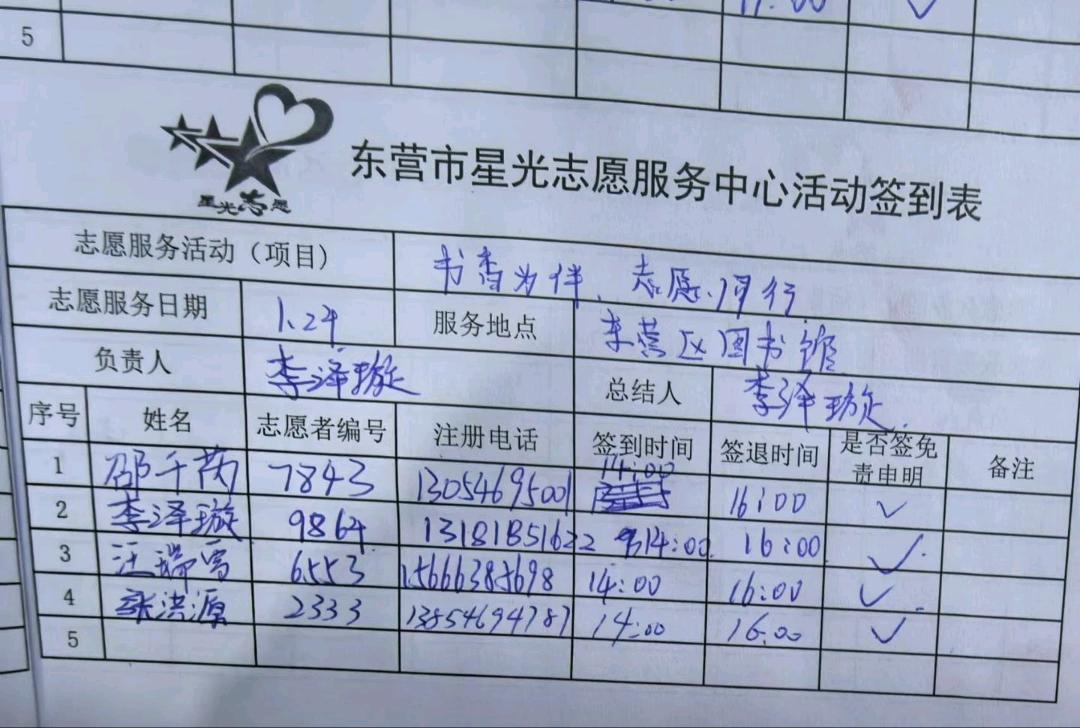 5
星光志愿
东营市星光志愿服务中心活动签到表
志愿服务活动（项目） 书香为伴、志愿同行
志愿服务日期 1.24 服务地点 东营区图书馆
负责人 李泽璇 总结人 李泽璇
序号 姓名 志愿者编号 注册电话 签到时间 签退时间 是否签免责申明 备注
1 邵千芮 7843 13054695001 14:00 16:00 ✓
2 李泽璇 9864 13181851622 14:00 16:00 ✓
3 汪瑞雪 6553 15666385698 14:00 16:00 ✓
4 张洪源 2333 13854694787 14:00 16:00 ✓
5